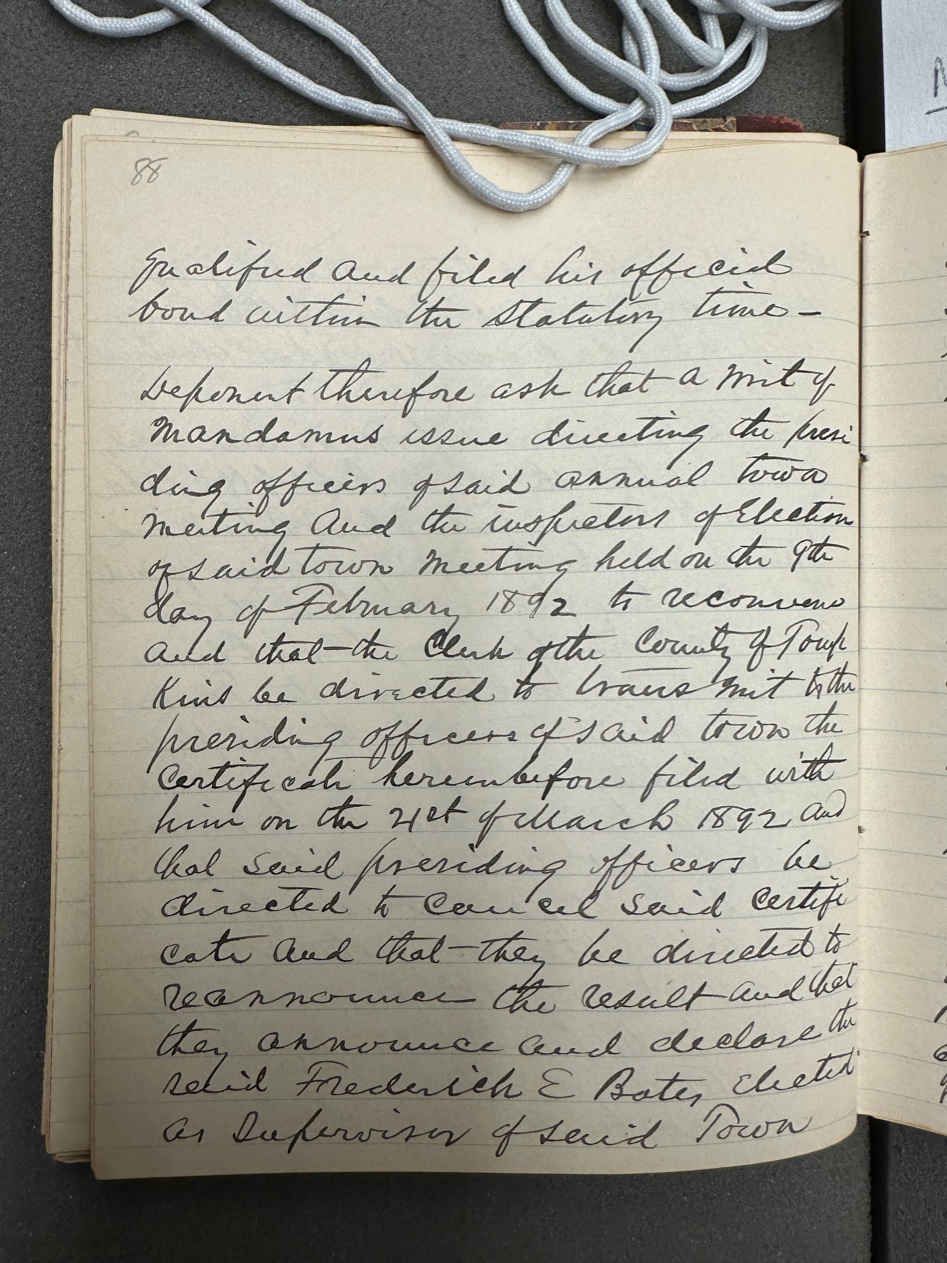 88
qualified and filed his official
bond within the statutory time –
Deponent therefore ask that a writ of
Mandamus issue directing the presi
ding officers of said annual town
meeting and the inspectors of Election
of said town meeting held on the 9th
day of February 1892 to reconvene
and that the Clerk of the County of Tomp
kins be directed to transmit to the
presiding officers of said town the
certificate hereinbefore filed with
him on the 21st of March 1892 and
that said presiding officers be
directed to cancel said certifi
cate and that they be directed to
reannounce the result and that
they announce and declare the
said Frederick E Bates Elected
as Supervisor of said Town